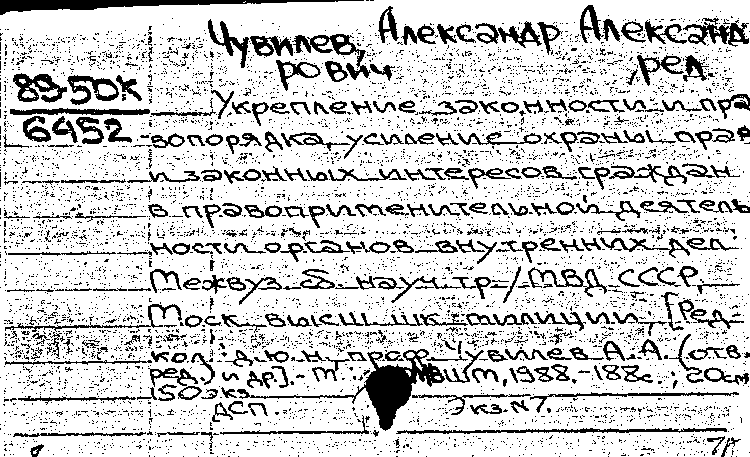 Чувилев, Александр Александ
рович, ред.
89-50К
6452
Укрепление законности и пра
вопорядка, усиление охраны прав
и законных интересов граждан
в правоприменительной деятель
ности органов внутренних дел:
Межвуз. сб. науч. тр. / МВД СССР,
Моск. высш. шк. милиции; [Ред-
кол.: д.ю.н., проф. Чувилев А.А. (отв.
ред.) и др.]. - М.: МВШМ, 1988. - 188с.; 20см
150 экз.
ДСП. Экз. № 7.